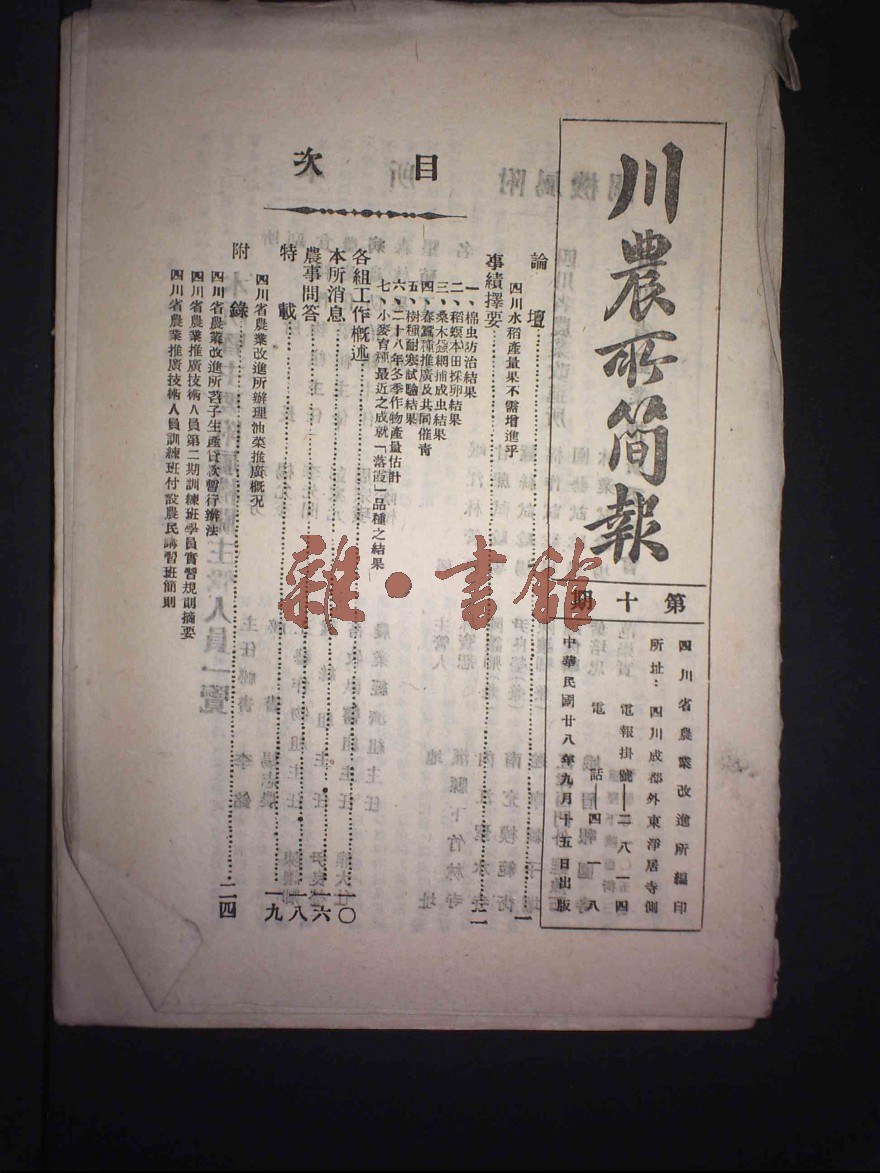 川農所簡報
第十期
四川省農業改進所編印
所址：四川成都外東淨居寺側
電報掛號——二八一四
電話——四一八
中華民國廿八年九月十五日出版
目次
論壇……一
四川水稻產量果不需增進乎
事績擇要……二
一、棉虫防治結果
二、稻螟本田採卵結果
三、桑木蝨網捕成虫結果
四、春蠶種推廣及共同催青
五、樹種耐寒試驗結果
六、二十八年冬季作物產量估計
七、小麥育種最近之成就「落霞」品種之結果
各組工作概述……一〇
本所消息……一六
農事問答……一八
特載……一九
四川省農業改進所辦理油菜推廣概況
附錄……二四
四川省農業改進所苕子生產貸款暫行辦法
四川省農業推廣技術人員第二期訓練班學員實習規則摘要
四川省農業推廣技術人員訓練班付設農民講習班簡則
雜·書館